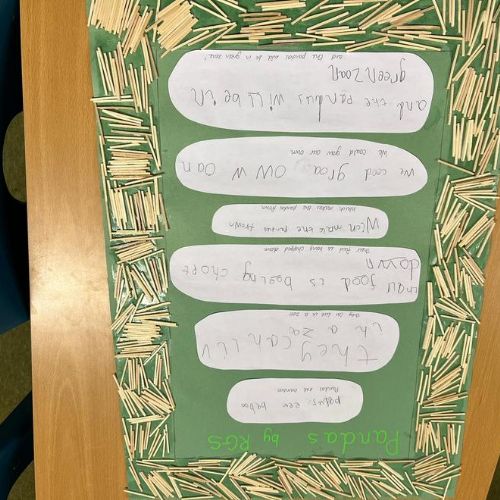 Pandas by RGS
Pandas eat bamboo
they can liv
in a zo
they can live in a zoo
food is beeing chopt
down
their food is being chopped down
mak the pandus frown
which makes the pandas frown
we cood groa oww oan
We could grow our own
and the pandus will be in
green zoan
and the pandas will be in green zone!